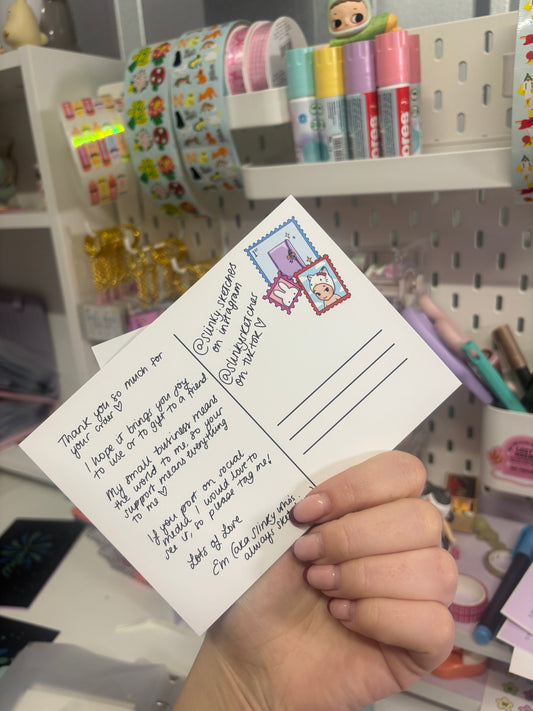 Thank you so much for
your order ♡
I hope it brings you joy
to use or to gift to a friend
My small business means
the world to me, so your
support means everything
to me ♡
If you post on social
media I would love to
see it, so please tag me!
Lots of Love
Em (aka slinky who's
always
@slinky.sketches
on instagram
@slinkysketches
on tiktok ♡